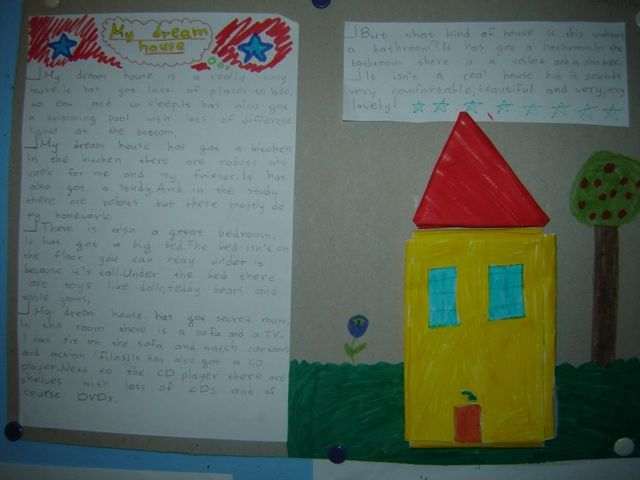 My dream
house
My dream house is a really cosy
house. It has got lots of places to hide,
so eat and to sleep. It has also got
a swimming pool with lots of different
at the bottom.
My dream house has got a kitchen
In the kitchen there are robots who
cook for me and my friends. It has
also got a study. And in the study
there are robots but these mostly do
my homework.
There is also a great bedroom.
It has got a big bed. The bed isn't on
the floor you can crawl under it
because it's tall. Under the bed there
are toys like dolls, teddy bears and
games.
My dream house has got secret room.
In this room there is a sofa and a TV.
I can sit on the sofa and watch cartoons
and action films. It has also got a CD
player. Next to the CD player there are
shelves with lots of CDs and of
course DVDs.
But what kind of house is this without
a bathroom? It has got a bathroom. In the
bathroom there is a toilet and a shower.
It isn't a real house but it sounds
very comfortable, beautiful and very, very
lovely!